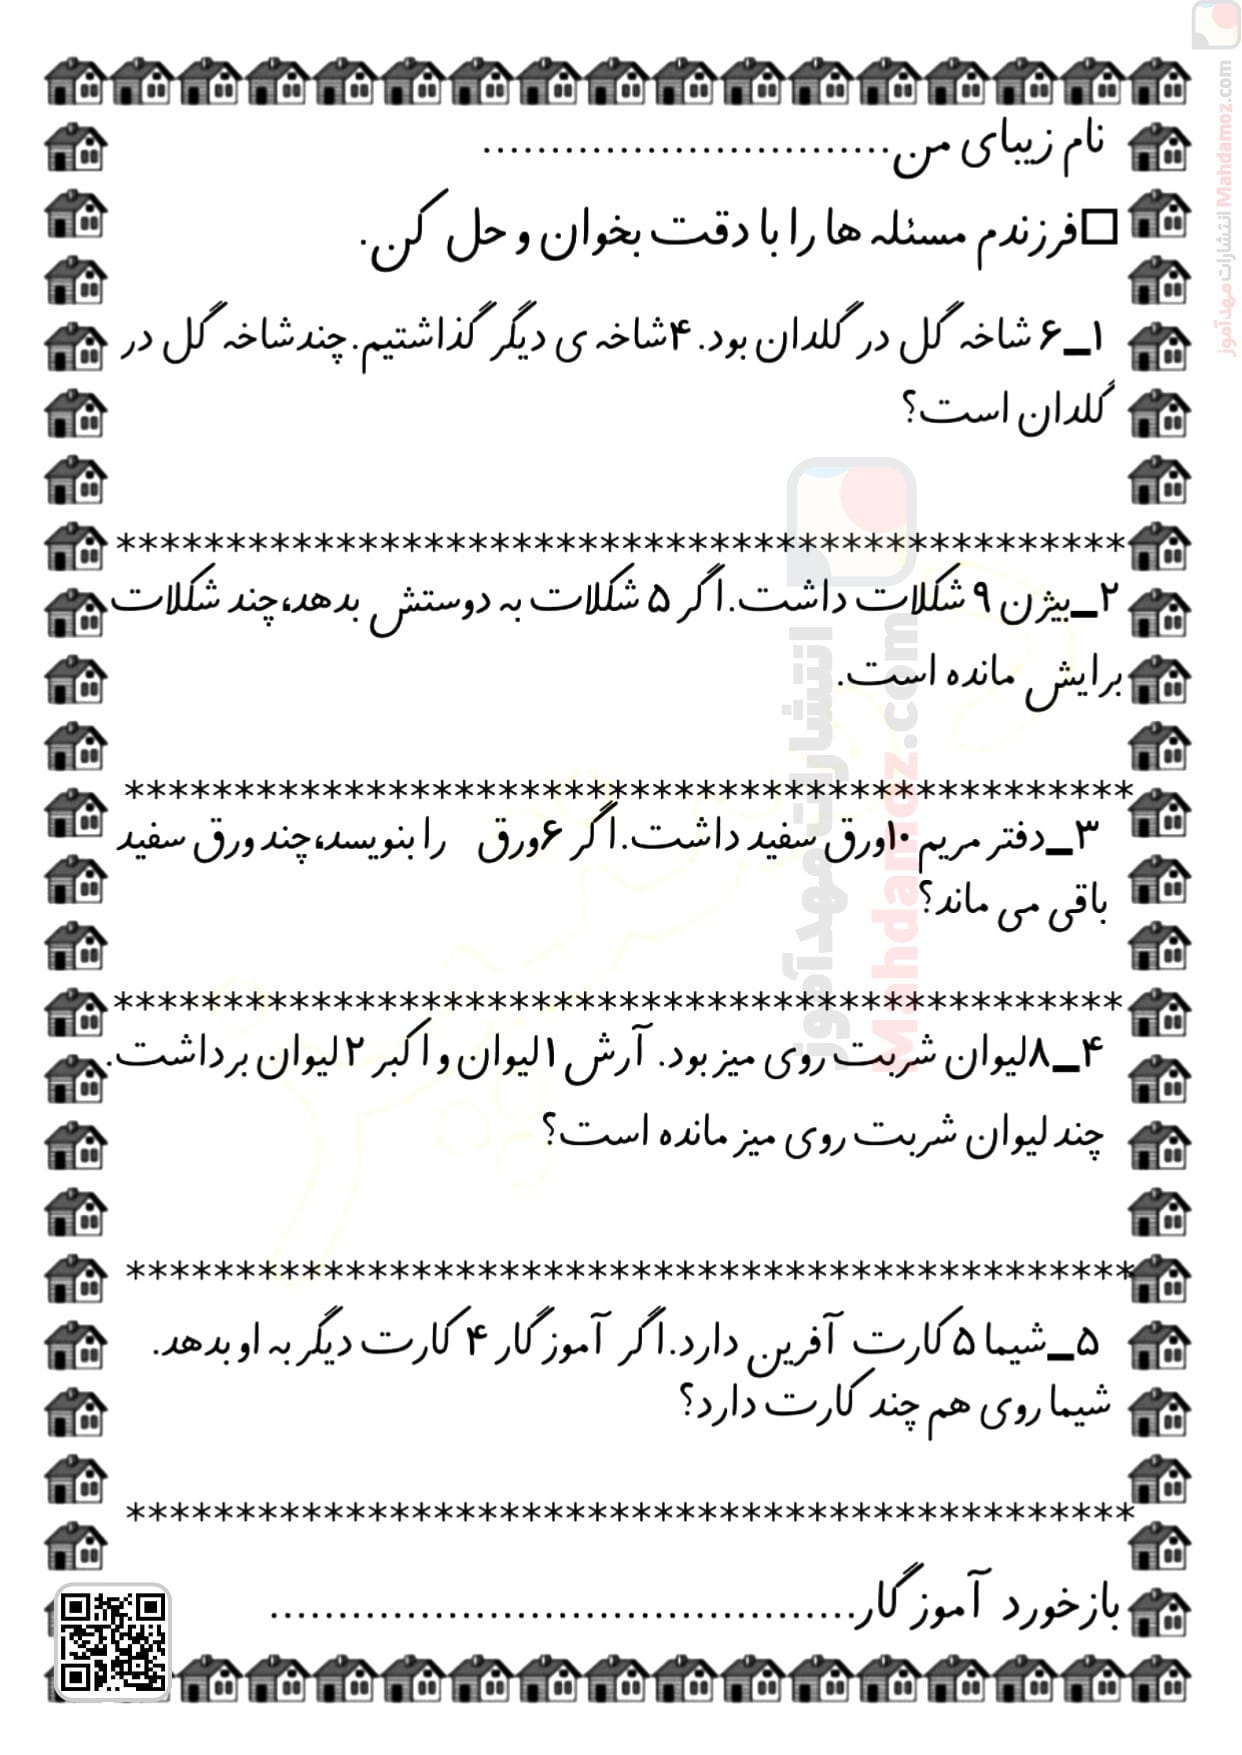 نام زیبای من..............................
□فرزندم مسئله ها را با دقت بخوان و حل کن.
۱_۶ شاخه گل در گلدان بود. ۴شاخه ی دیگر گذاشتیم.چندشاخه گل در
گلدان است؟
**********************************************
۲_بیژن ۹ شکلات داشت.اگر ۵ شکلات به دوستش بدهد،چند شکلات
برایش مانده است.
**********************************************
۳_دفتر مریم ۱۰ورق سفید داشت.اگر ۶ورق را بنویسد،چند ورق سفید
باقی می ماند؟
**********************************************
۴_۸لیوان شربت روی میز بود. آرش ۱لیوان و اکبر ۲لیوان برداشت.
چند لیوان شربت روی میز مانده است؟
**********************************************
۵_شیما ۵ کارت آفرین دارد.اگر آموزگار ۴ کارت دیگر به او بدهد.
شیما روی هم چند کارت دارد؟
**********************************************
بازخورد آموزگار...........................................
انتشارات مهدآموز
Mahdamoz.com
انتشارات مهدآموز Mahdamoz.com